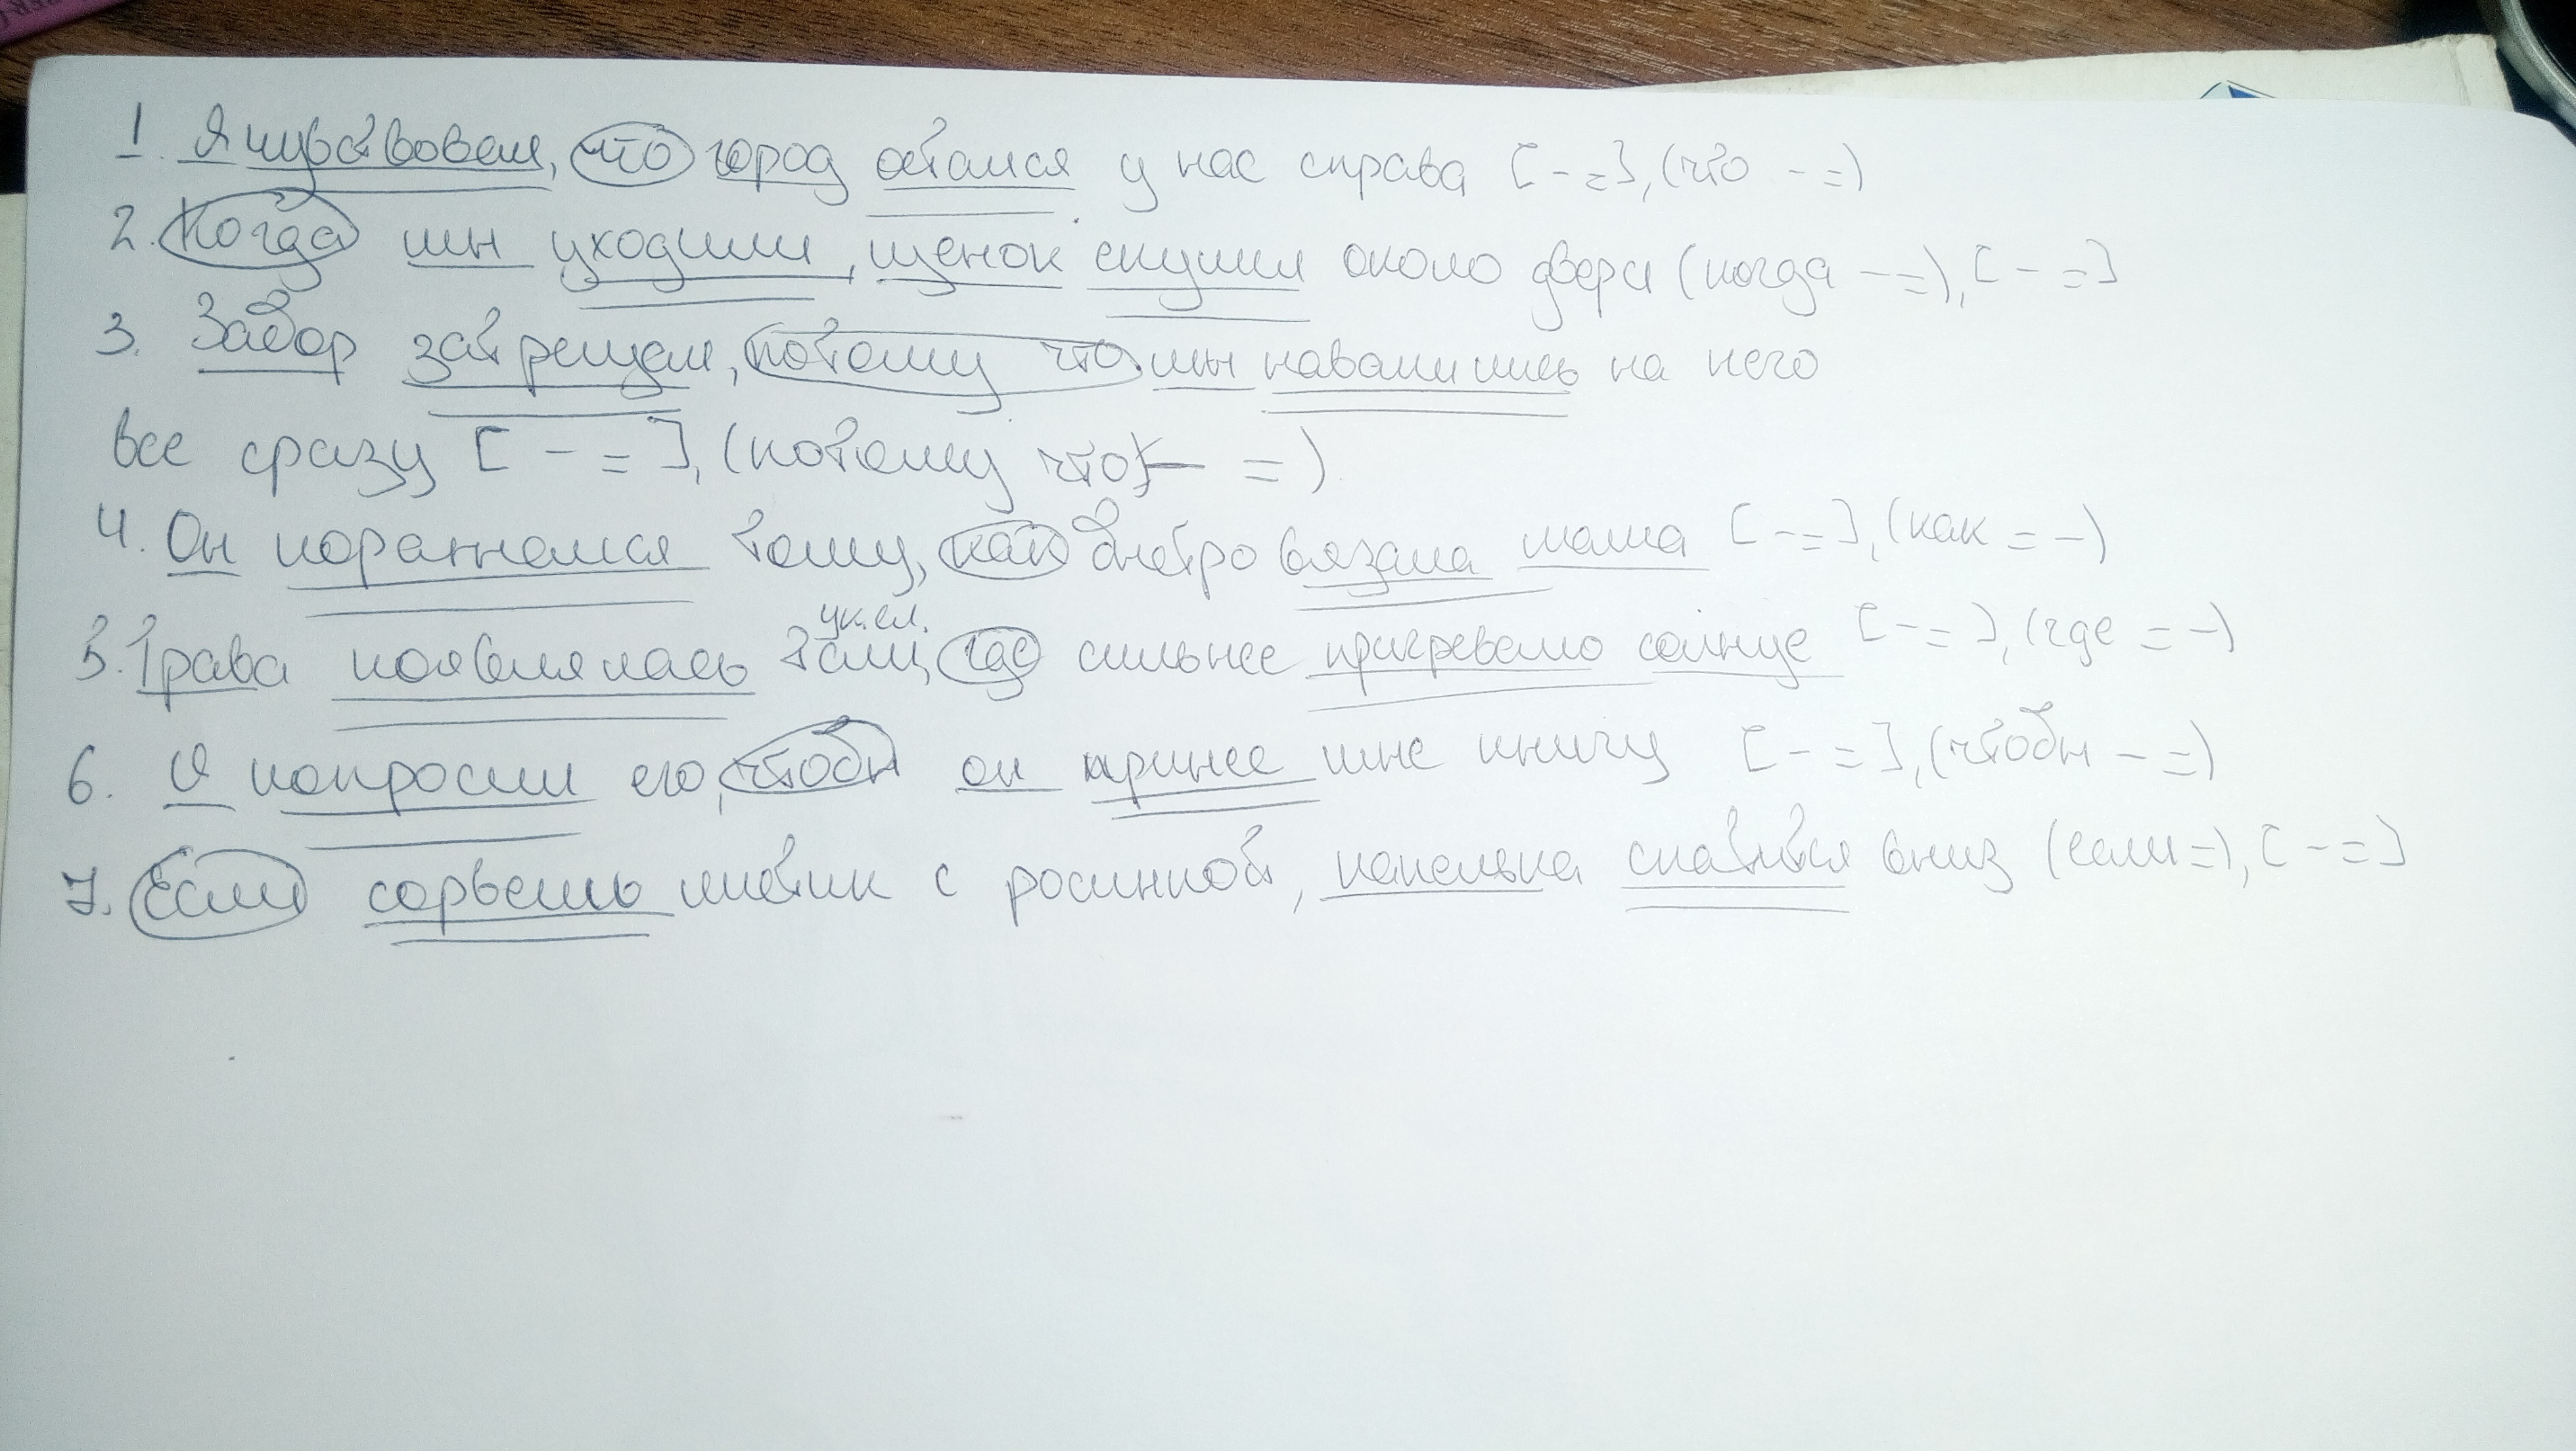 1. Я чувствовал, что город остался у нас справа [- =], (что - =)
2. Когда мы уходили, щенок скулил около двери (когда - =), [- =]
3. Забор затрещал, потому что мы навалились на него
все сразу [- =], (потому что - =)
4. Он поражался тому, как быстро вязала мама [- =], (как = -)
ук.сл.
5. Трава появлялась там, где сильнее пригревало солнце [- =], (где = -)
6. Я попросил его, чтобы он принес мне книгу [- =], (чтобы - =)
7. Если сорвешь листик с росинкой, капелька скатится вниз (если =), [- =]